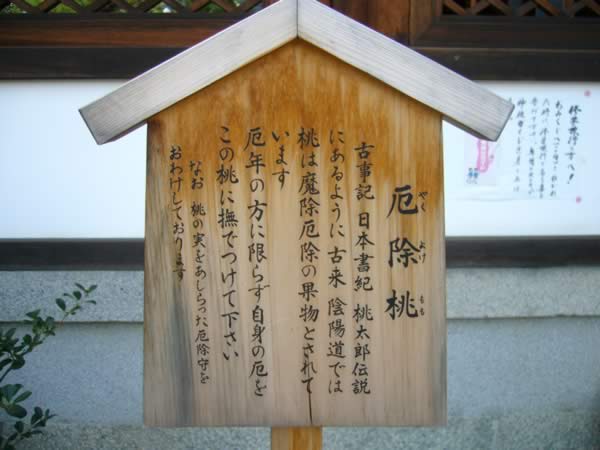 厄除桃
やく よけ もも
古事記 日本書紀 桃太郎伝説
にあるように 古来 陰陽道では
桃は魔除厄除の果物とされて
います
厄年の方に限らず自身の厄を
この桃に撫でつけて下さい
なお 桃の実をあしらった厄除守を
おわけしております